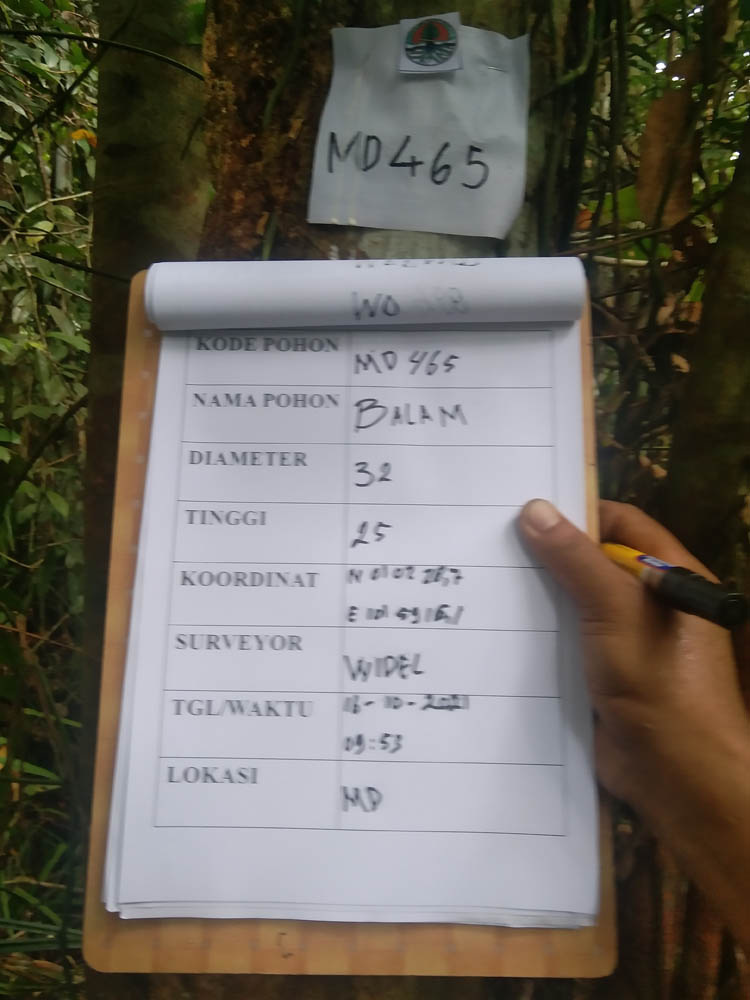 MD465
WO
KODE POHON MD 465
NAMA POHON BALAM
DIAMETER 32
TINGGI 25
KOORDINAT N 01 02 28,7
E 101 59 16,1
SURVEYOR WIDEL
TGL/WAKTU 16-10-2021
09:53
LOKASI MD